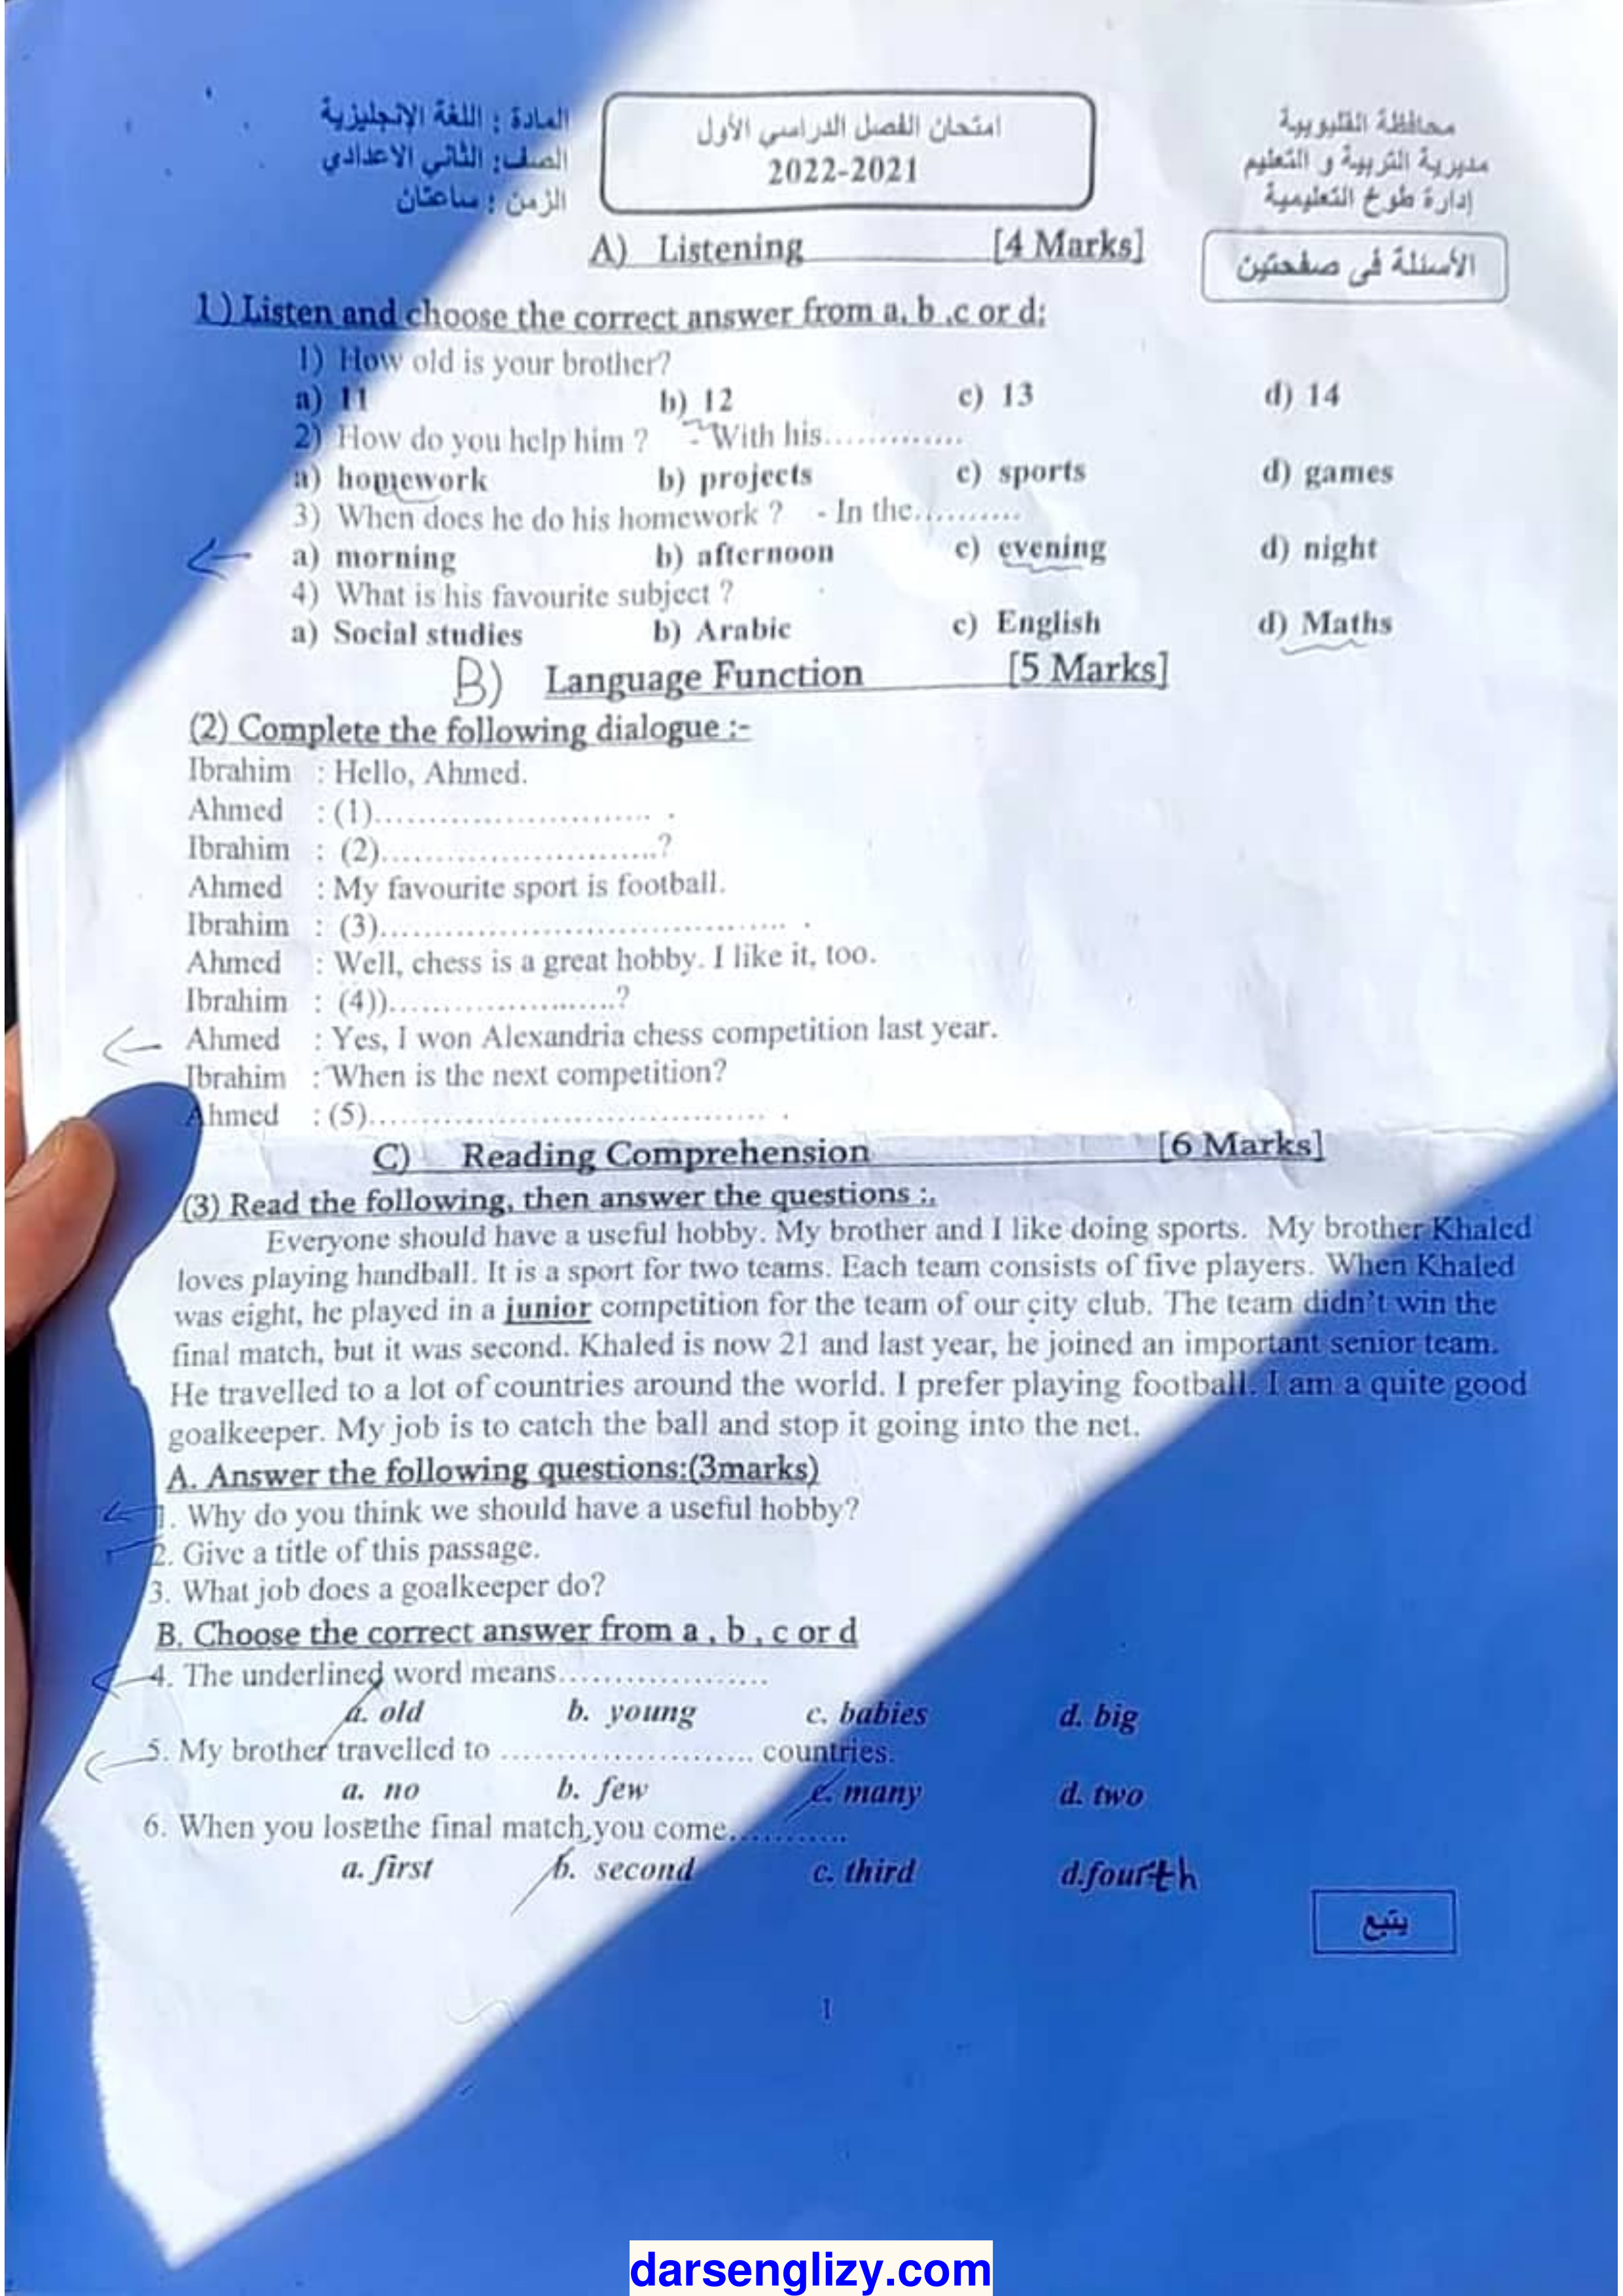 محافظة القليوبية
مديرية التربية و التعليم
إدارة طوخ التعليمية
امتحان الفصل الدراسي الأول
2022-2021
المادة : اللغة الإنجليزية
الصف: الثاني الاعدادي
الزمن : ساعتان
الأسئلة فى صفحتين
A) Listening [4 Marks]
1) Listen and choose the correct answer from a, b ,c or d:
1) How old is your brother?
a) 11 b) 12 c) 13 d) 14
2) How do you help him ? - With his.............
a) homework b) projects c) sports d) games
3) When does he do his homework ? - In the..........
a) morning b) afternoon c) evening d) night
4) What is his favourite subject ?
a) Social studies b) Arabic c) English d) Maths
B) Language Function [5 Marks]
(2) Complete the following dialogue :-
Ibrahim : Hello, Ahmed.
Ahmed : (1).......................... .
Ibrahim : (2)..........................?
Ahmed : My favourite sport is football.
Ibrahim : (3)...................................... .
Ahmed : Well, chess is a great hobby. I like it, too.
Ibrahim : (4))......................?
Ahmed : Yes, I won Alexandria chess competition last year.
Ibrahim : When is the next competition?
Ahmed : (5)..................................... .
C) Reading Comprehension [6 Marks]
(3) Read the following, then answer the questions :.
Everyone should have a useful hobby. My brother and I like doing sports. My brother Khaled
loves playing handball. It is a sport for two teams. Each team consists of five players. When Khaled
was eight, he played in a junior competition for the team of our city club. The team didn't win the
final match, but it was second. Khaled is now 21 and last year, he joined an important senior team.
He travelled to a lot of countries around the world. I prefer playing football. I am a quite good
goalkeeper. My job is to catch the ball and stop it going into the net.
A. Answer the following questions:(3marks)
1. Why do you think we should have a useful hobby?
2. Give a title of this passage.
3. What job does a goalkeeper do?
B. Choose the correct answer from a , b , c or d
4. The underlined word means....................
a. old b. young c. babies d. big
5. My brother travelled to ........................ countries.
a. no b. few c. many d. two
6. When you lose the final match, you come...........
a. first b. second c. third d.fourth
يتبع
1
darsenglizy.com